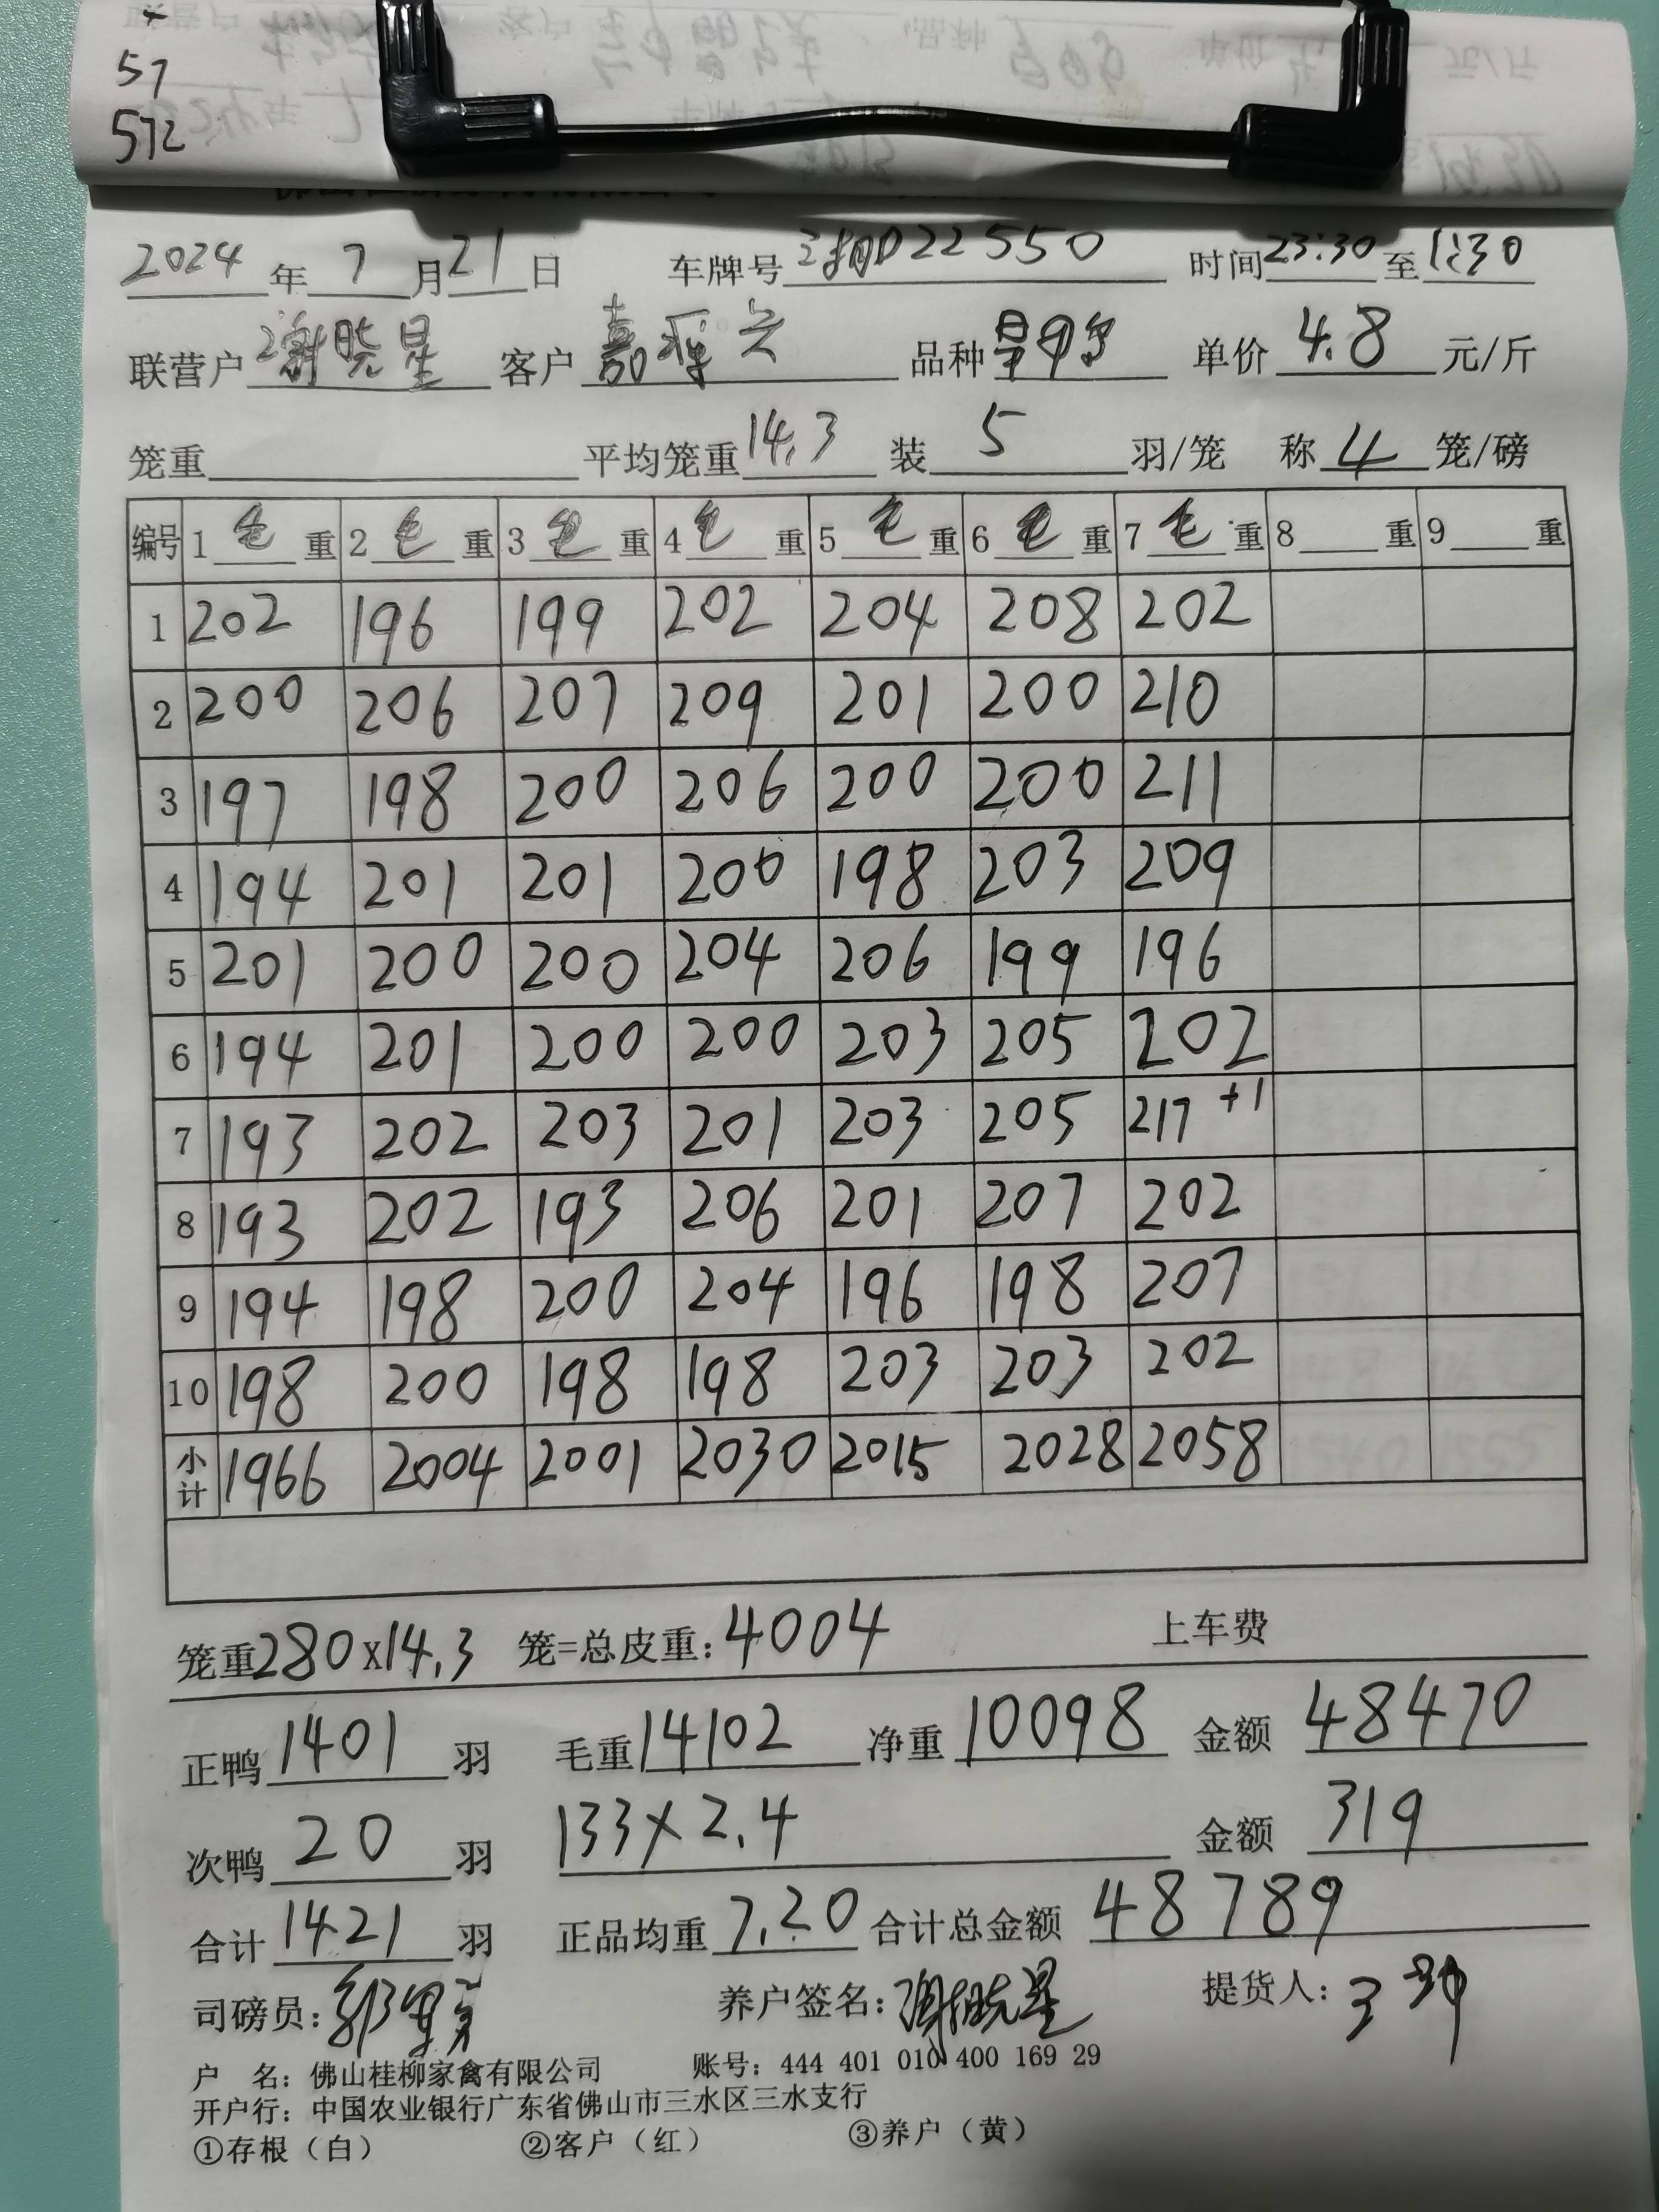 57
572
2024 年 7 月 21 日 车牌号 D22550 时间 23:30 至 1:30
联营户 谢晓星 客户 嘉 品种 单价 4.8 元/斤
笼重 平均笼重 14.3 装 5 羽/笼 称 4 笼/磅
编号 1 毛 重 2 毛 重 3 毛 重 4 毛 重 5 毛 重 6 毛 重 7 毛 重 8 重 9 重
1 202 196 199 202 204 208 202
2 200 206 207 209 201 200 210
3 197 198 200 206 200 200 211
4 194 201 201 200 198 203 209
5 201 200 200 204 206 199 196
6 194 201 200 200 203 205 202
7 193 202 203 201 203 205 217 +1
8 193 202 193 206 201 207 202
9 194 198 200 204 196 198 207
10 198 200 198 198 203 203 202
小计 1966 2004 2001 2030 2015 2028 2058
笼重 280x14.3 笼=总皮重: 4004 上车费
正鸭 1401 羽 毛重 14102 净重 10098 金额 48470
次鸭 20 羽 133x2.4 金额 319
合计 1421 羽 正品均重 7.20 合计总金额 48789
司磅员: 养户签名: 谢晓星 提货人:
户 名: 佛山桂柳家禽有限公司 账号: 444 401 010 400 169 29
开户行: 中国农业银行广东省佛山市三水区三水支行
①存根（白） ②客户（红） ③养户（黄）